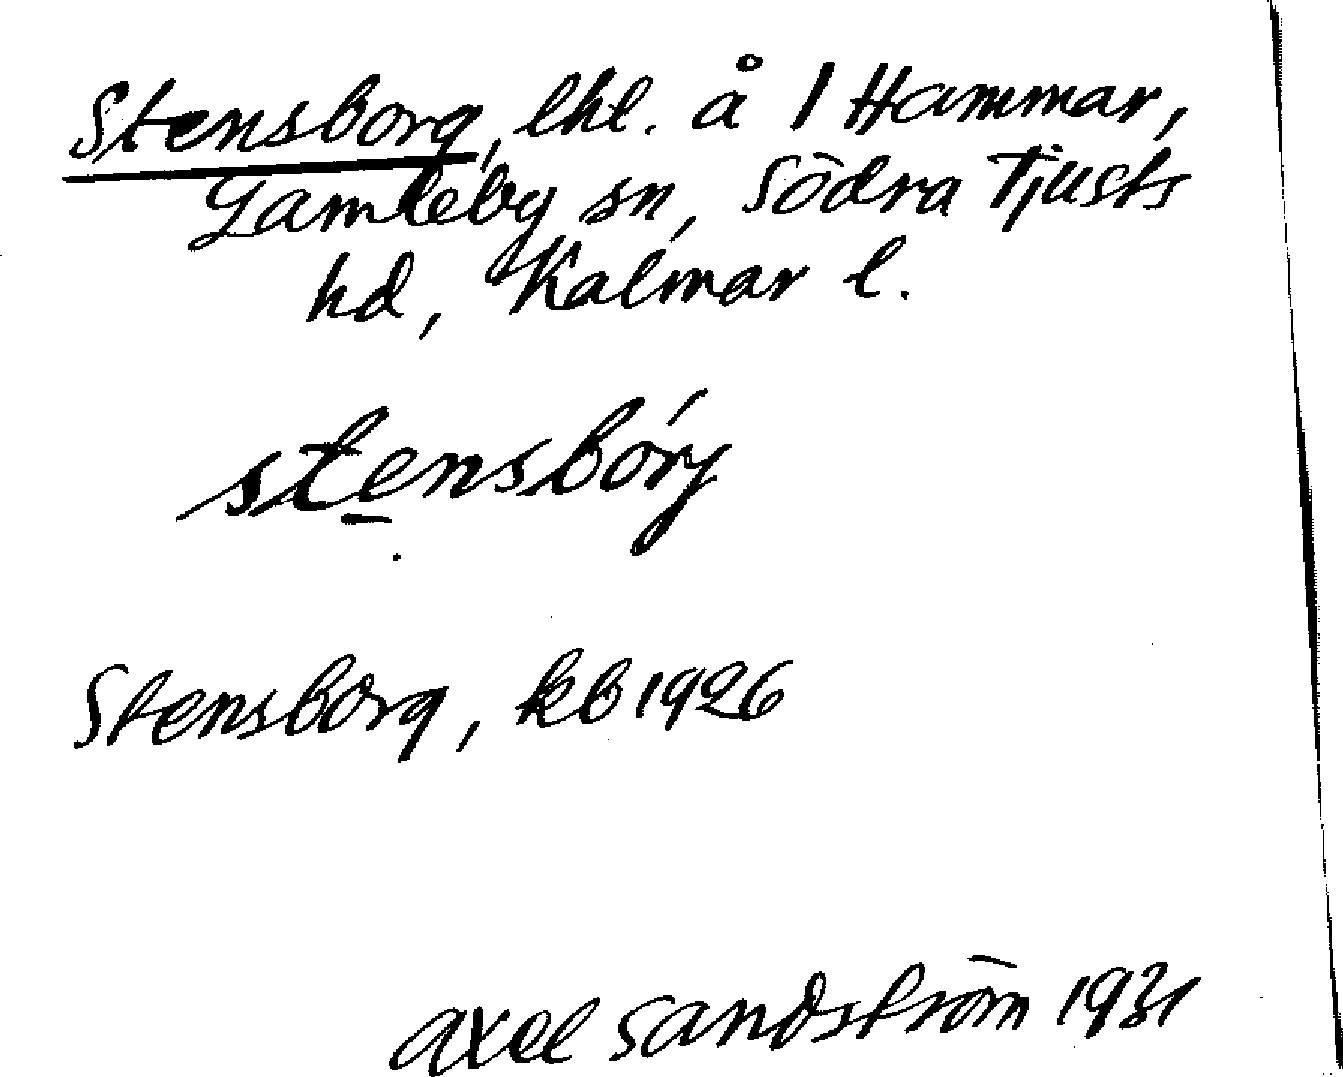 Stensborg, lht. å 1 Hammar,
Gamleby sn, Södra Tjusts
hd, Kalmar l.
stensbórj
Stensborg, kb 1926
Axel Sandström 1931